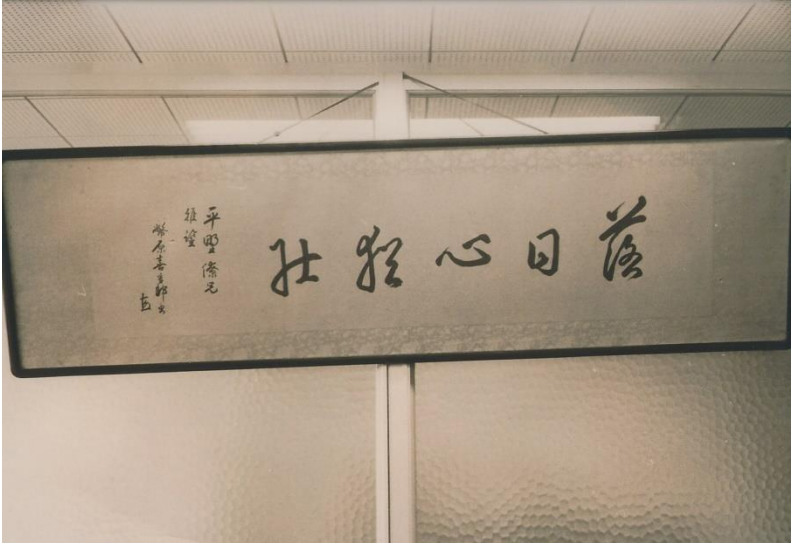 落日心猶壮
平野僚兄
雅望
幣原喜重郎書